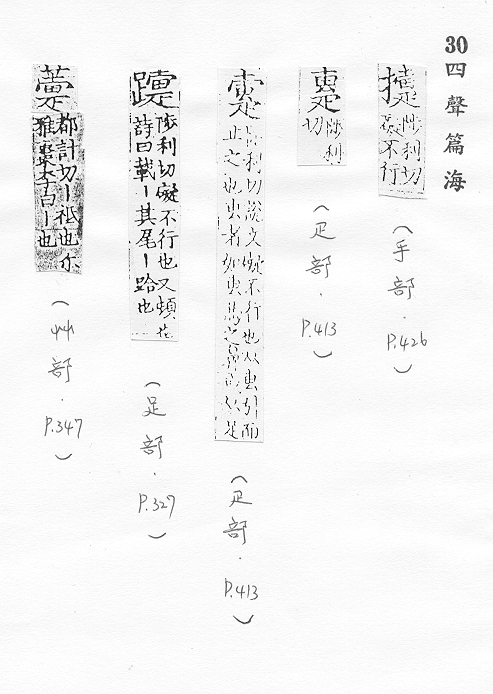 30
四聲篇海
陟利切
礙不行
(手部.P.426)
陟利
切
(疋部.P.413)
疐
陟利切說文礙不行也从叀引而
止之也叀者如叀馬之鼻
(疋部.P.413)
陟利切礙不行也又頓也
詩曰載丨其尾丨跲也
(足部.P.327)
都計切丨柢也尔
雅棗李曰丨也
(艸部.P.347)